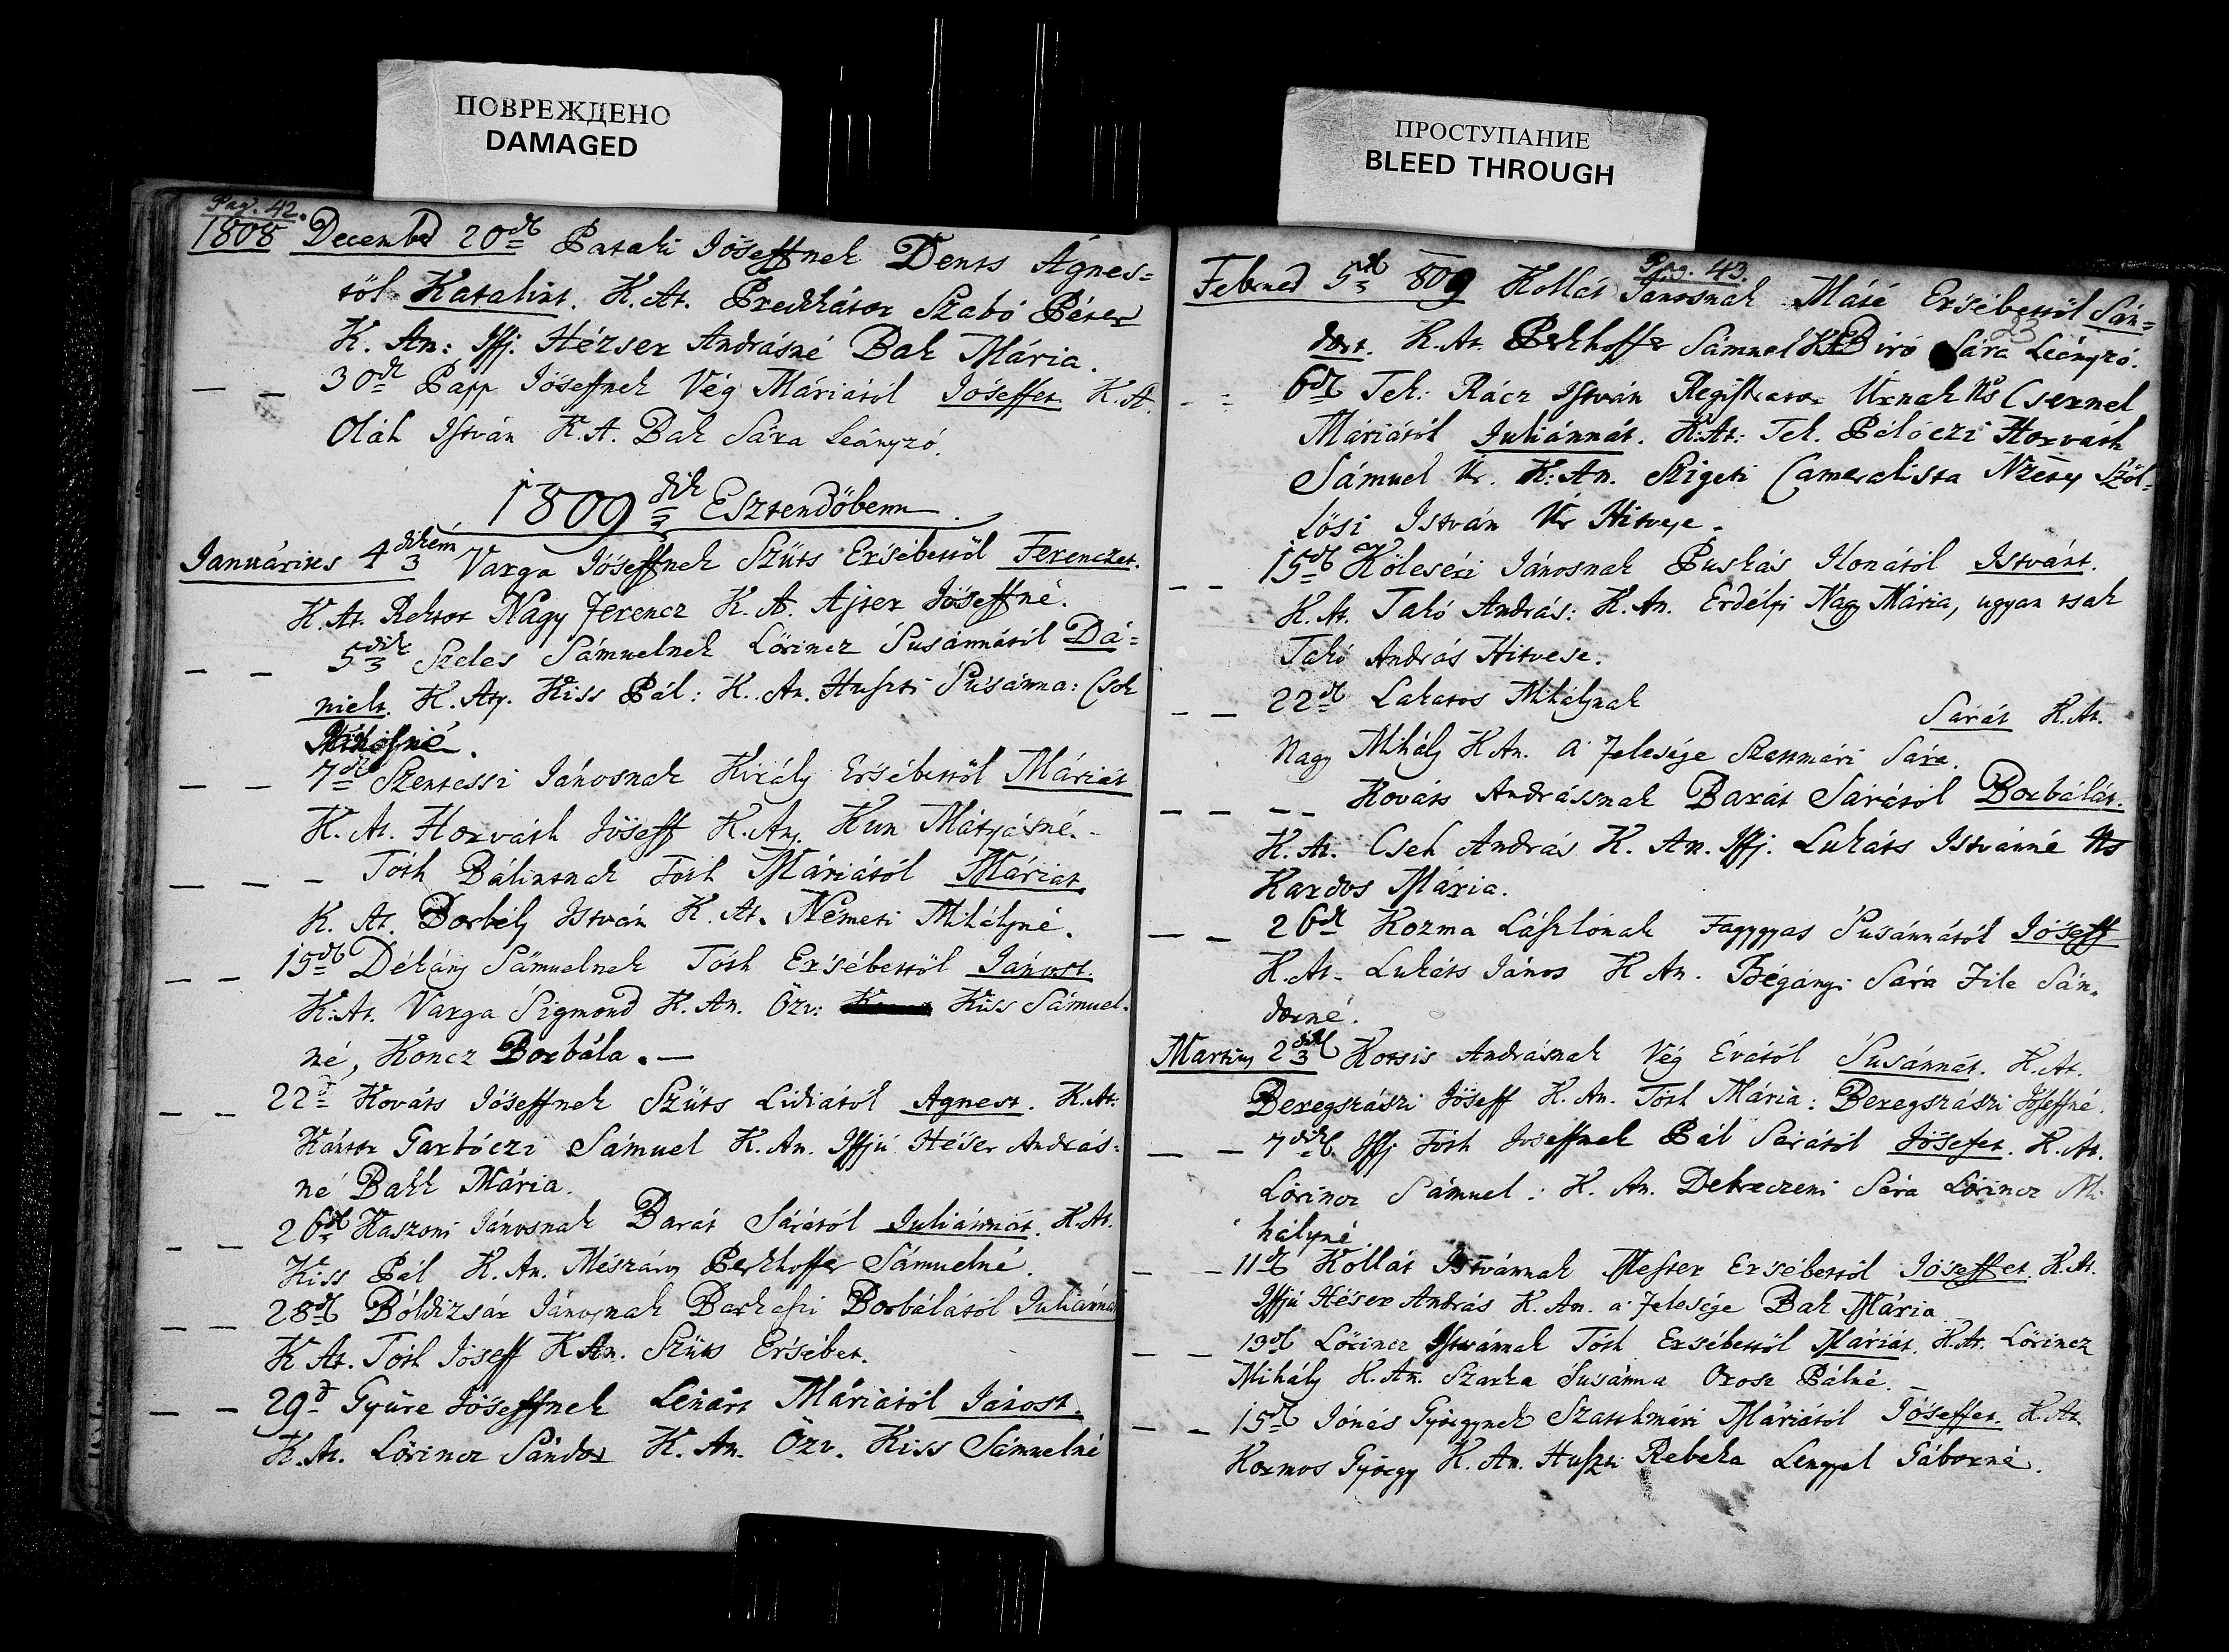 ПОВРЕЖДЕНО
DAMAGED
ПРОСТУПАНИЕ
BLEED THROUGH
Pag. 42.
1808 Decembed 20dk Pataki Jóseffnek Dents Ágnes=
től Katalint. K. At. Predikátor Szabó Péter
K. An: Iffj. Hézser Andrásné Bak Mária.
— — 30dk Papp Jóseffnek Vég Máriától Jóseffet K. At.
Oláh István K. A. Bak Sára Leányzó.
1809dik Esztendőbenn.
Januárius 4dikénn Varga Jóseffnek Szüts Ersébettől Ferenczet.
K. At. Rektor Nagy Ferencz K. A. Ajter Jóseffné.
— — 5dik Szeles Sámuelnek Lőrincz Susánnától Dá=
nielt. K. Aty. Kiss Pál: K. An. Huszti Susánna: Csok
— — 7dk Szentessi Jánosnak Király Ersébettől Máriát
K. At. Horváth Jóseff K. Any. Kun Mátyásné. -
— — — Tóth Bálintnak Tóth Máriától Máriat
K. At. Borbély István K. At. Németi Mihályné.
— — 15dk Dékány Sámuelnek Tóth Ersébettől Jánost.
K. At. Varga Sigmond K. An. Özv: Kiss Sámuel=
né, Koncz Borbála. —
— — 22d Kováts Jóseffnek Szüts Lidiától Agnest. K. At:
Kántor Garbóczi Sámuel K. An. Iffjú Héser András=
né Bakk Mária.
— — 26dk Kaszoni Jánosnak Barát Sárától Juliánnát. K. At.
Kiss Pál K. An. Mészáros Perkhoffer Sámuelné.
— — 28dk Bóldizsár Jánosnak Barkaszi Borbálától Juliánna
K At. Tóth Jóseff K An. Szüts Ersébet.
— — 29d Gyüre Jóseffnek Lenárt Máriától Jánost.
K. At. Lőrincz Sándor K. An. Özv. Kiss Sámuelné
Pag. 43.
23
Februed 5dik 809 Kollát Jánosnak Máté Ersébettől Sán=
dort. K. At. Perkhoffer Sámuel K A Biró Sára Leányzó.
- = 6dk Tek: Rácz István Registrator Úrnak Ns Csernel
Máriától Juliánnát. K: At: Tek. Pélóczi Horváth
Sámuel Ur. K: An. Szigeti Cameralista Nzetes Szől=
lősi István Ur Hitvese.
— — 15dk Kölcséri Jánosnak Puskás Ilonától Istvánt.
K. At. Takó András: K. An. Erdélyi Nagy Mária, ugyan tsak
Takó András Hitvese.
— — 22dk Lakatos Mihálynak Sárát K. At.
Nagy Mihály K An. a' Felesége Szatmári Sára.
— — — — Kováts Andrásnak Barát Sárától Borbálát.
K. At. Cseh András K. An. Iffj. Lukáts Istvánné Ns
Kardos Mária.
— — 26dk Kozma Lászlónak Faggyas Susánnától Jóseff
K. At. Lukáts János K An. Bégányi Sára File Sán=
dorné.
Martius 2dik Kotsis Andrásnak Vég Évától Susánnát. K. At.
Beregszászi Jóseff K. An. Tóth Mária: Beregszászi Jóseffné.
— — 7dik Iffj Tóth Joseffnek Pál Sárától Jósefet. K. At.
Lőrincz Sámuel: K. An. Debreczeni Sára Lőrincz Mi
hályné.
— — 11dk Kollát Istvánnak Mester Ersébettől Jóseffet K. At.
Iffjú Héser András K. An. a' Felesége Bak Mária
— — 13dk Lőrincz Istvánnak Tóth Ersébettől Máriát. K. At. Lőrincz
Mihály K. An. Szarka Susánna Orosz Pálné. —
— — 15dk Jónás Györgynek Szatthmári Máriától Jóseffet. K. At.
Kormos György K. An. Huszti Rebeka Lengyel Gáborné.